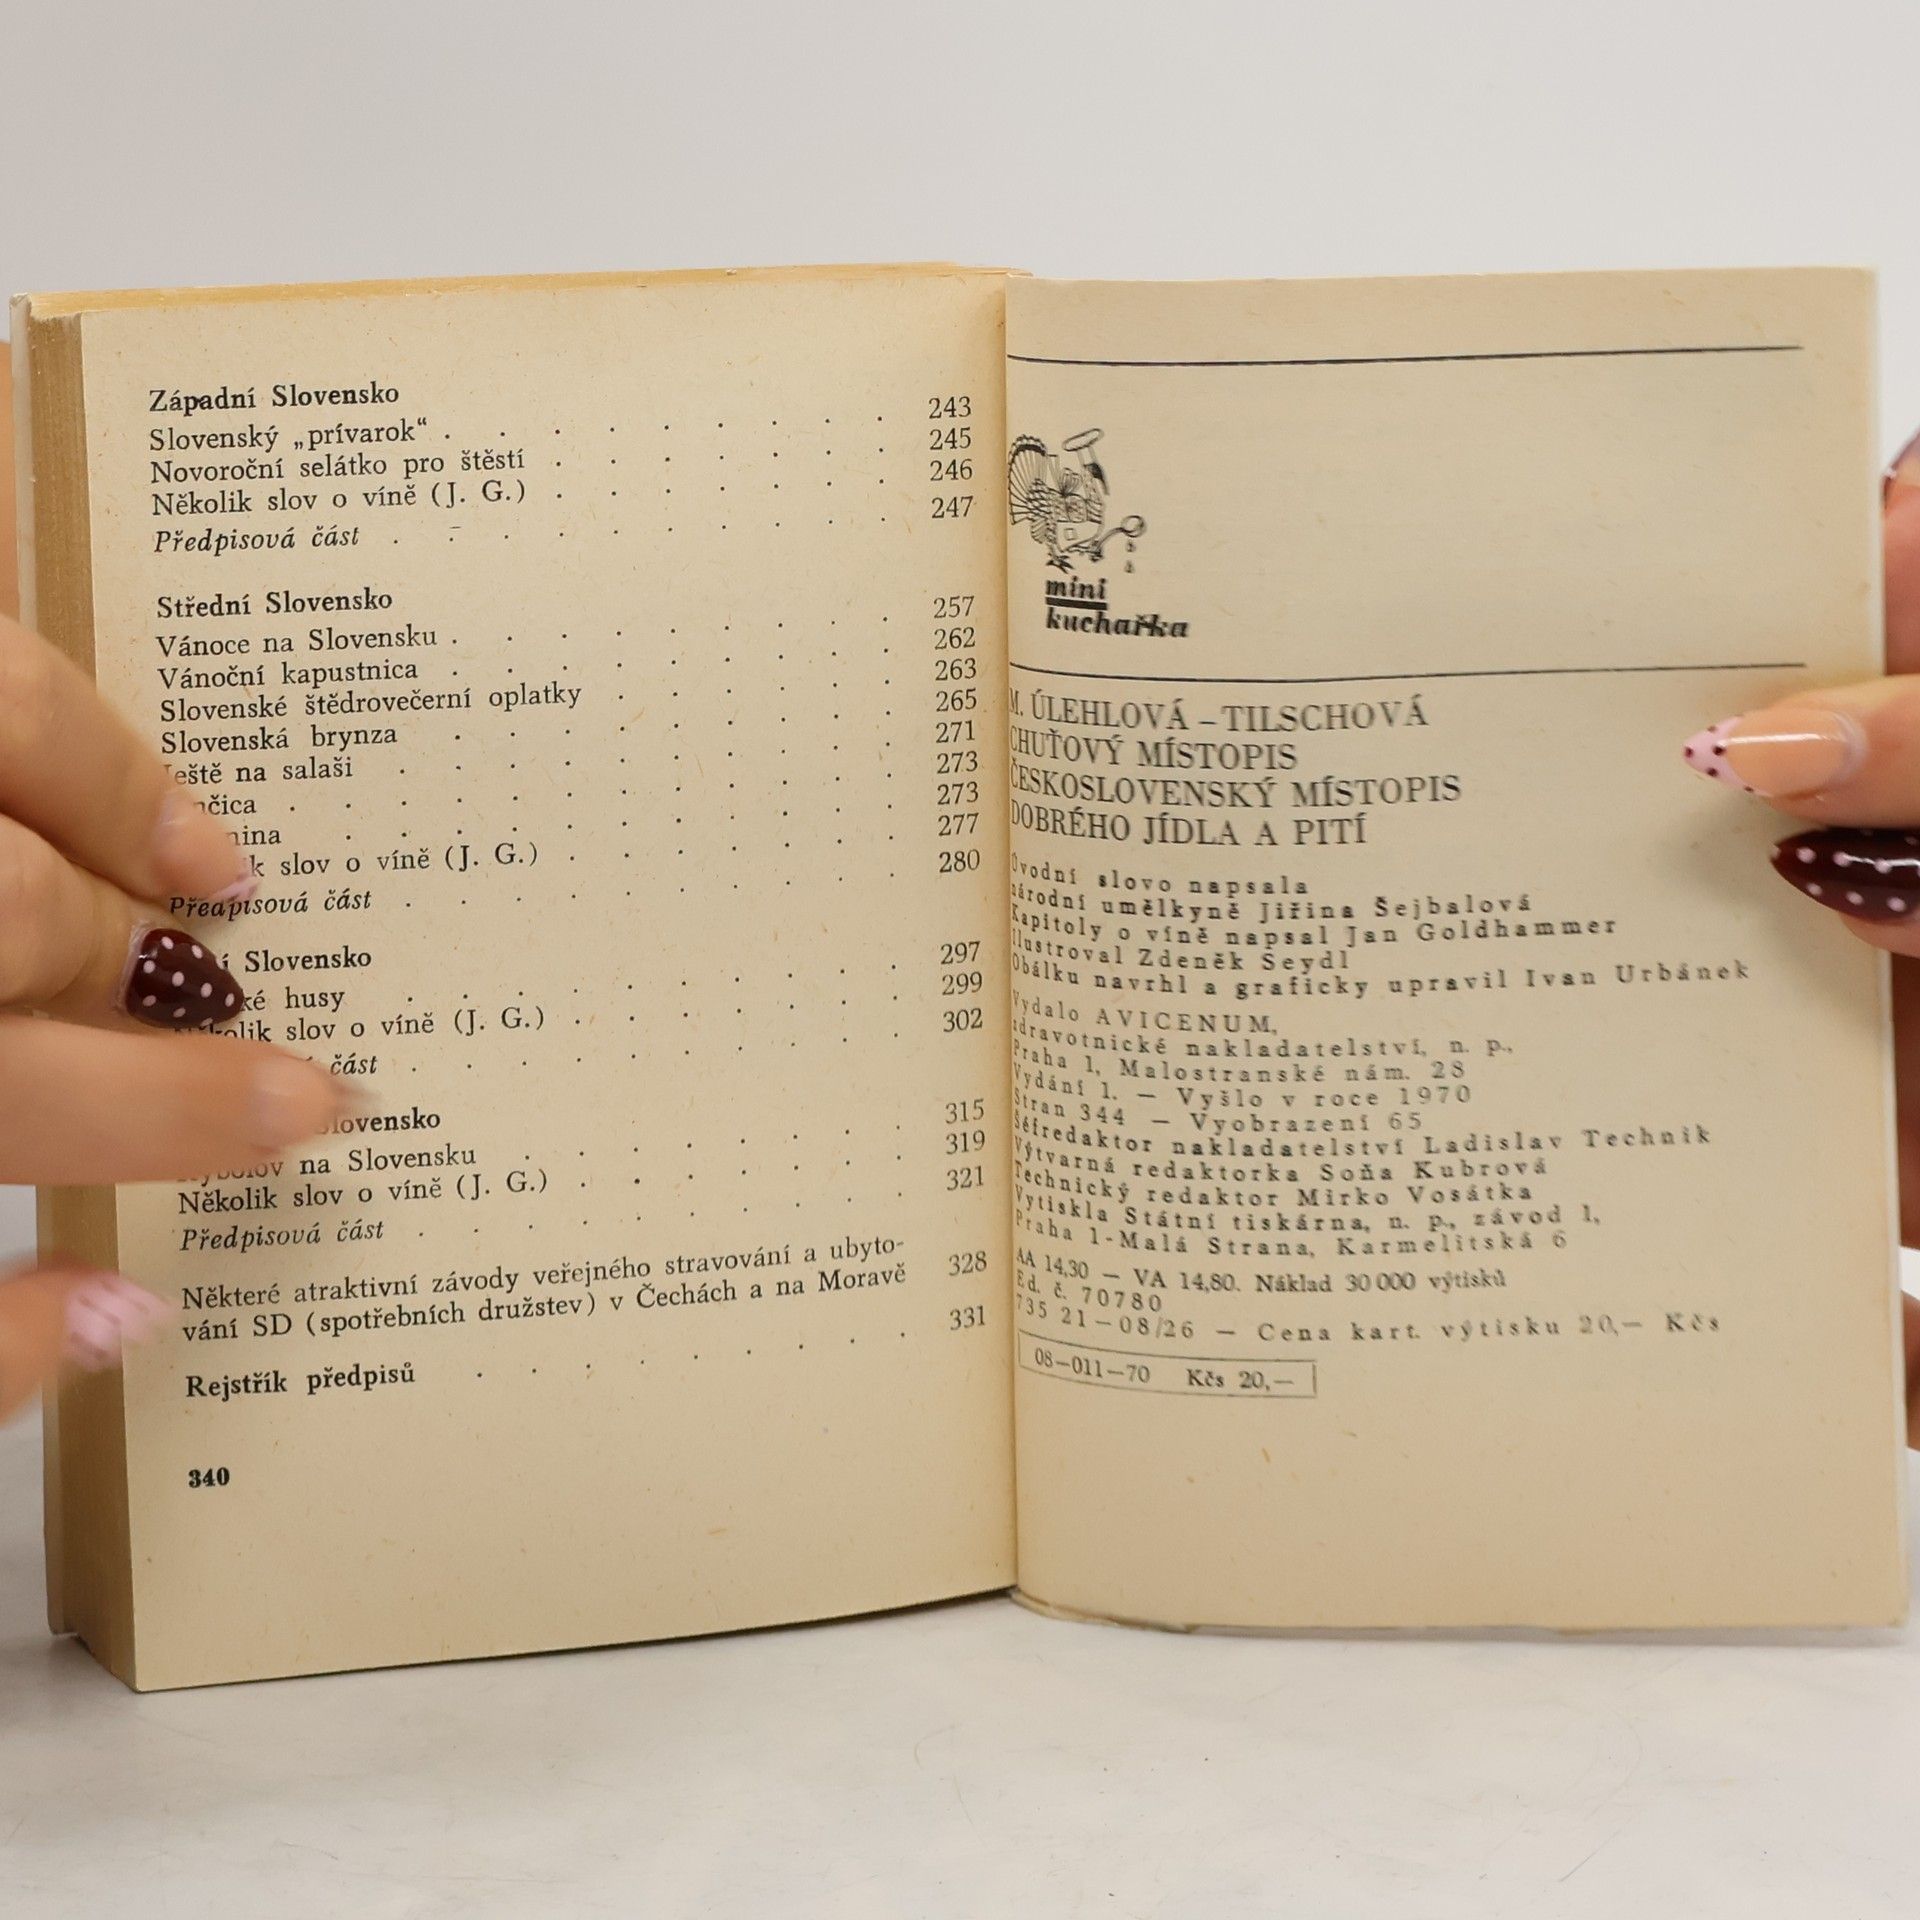 Západní Slovensko
Slovenský „prívarok“ . . . . . . . . . 243
Novoroční selátko pro štěstí . . . . . . . 245
Několik slov o víně (J. G.) . . . . . . . 246
Předpisová část . . . . . . . . . . 247
Střední Slovensko
Vánoce na Slovensku . . . . . . . . . 257
Vánoční kapustnica . . . . . . . . . 262
Slovenské štědrovečerní oplatky . . . . . . 263
Slovenská brynza . . . . . . . . . 265
Ještě na salaši . . . . . . . . . . 271
. . . . . . . . . . . . 273
. . . . . . . . . . . 273
slov o víně (J. G.) . . . . . . . 277
Předpisová část . . . . . . . . . . 280
Slovensko
husy . . . . . . . . . . 297
Několik slov o víně (J. G.) . . . . . . . 299
část . . . . . . . . . . 302
Slovensko
na Slovensku . . . . . . . . 315
Několik slov o víně (J. G.) . . . . . . . 319
Předpisová část . . . . . . . . . . 321
Některé atraktivní závody veřejného stravování a ubyto-
vání SD (spotřebních družstev) v Čechách a na Moravě 328
Rejstřík předpisů . . . . . . . . . 331
340
mini
kuchařka
M. ÚLEHLOVÁ – TILSCHOVÁ
CHUŤOVÝ MÍSTOPIS
ČESKOSLOVENSKÝ MÍSTOPIS
DOBRÉHO JÍDLA A PITÍ
Úvodní slovo napsala
národní umělkyně Jiřina Šejbalová
Kapitoly o víně napsal Jan Goldhammer
Ilustroval Zdeněk Seydl
Obálku navrhl a graficky upravil Ivan Urbánek
Vydalo AVICENUM,
zdravotnické nakladatelství, n. p.,
Praha 1, Malostranské nám. 28
Vydání 1. — Vyšlo v roce 1970
Stran 344 — Vyobrazení 65
Šéfredaktor nakladatelství Ladislav Technik
Výtvarná redaktorka Soňa Kubrová
Technický redaktor Mirko Vosátka
Vytiskla Státní tiskárna, n. p., závod 1,
Praha 1-Malá Strana, Karmelitská 6
AA 14,30 — VA 14,80. Náklad 30 000 výtisků
Ed. č. 70780
735 21—08/26 — Cena kart. výtisku 20,— Kčs
08—011—70 Kčs 20,—